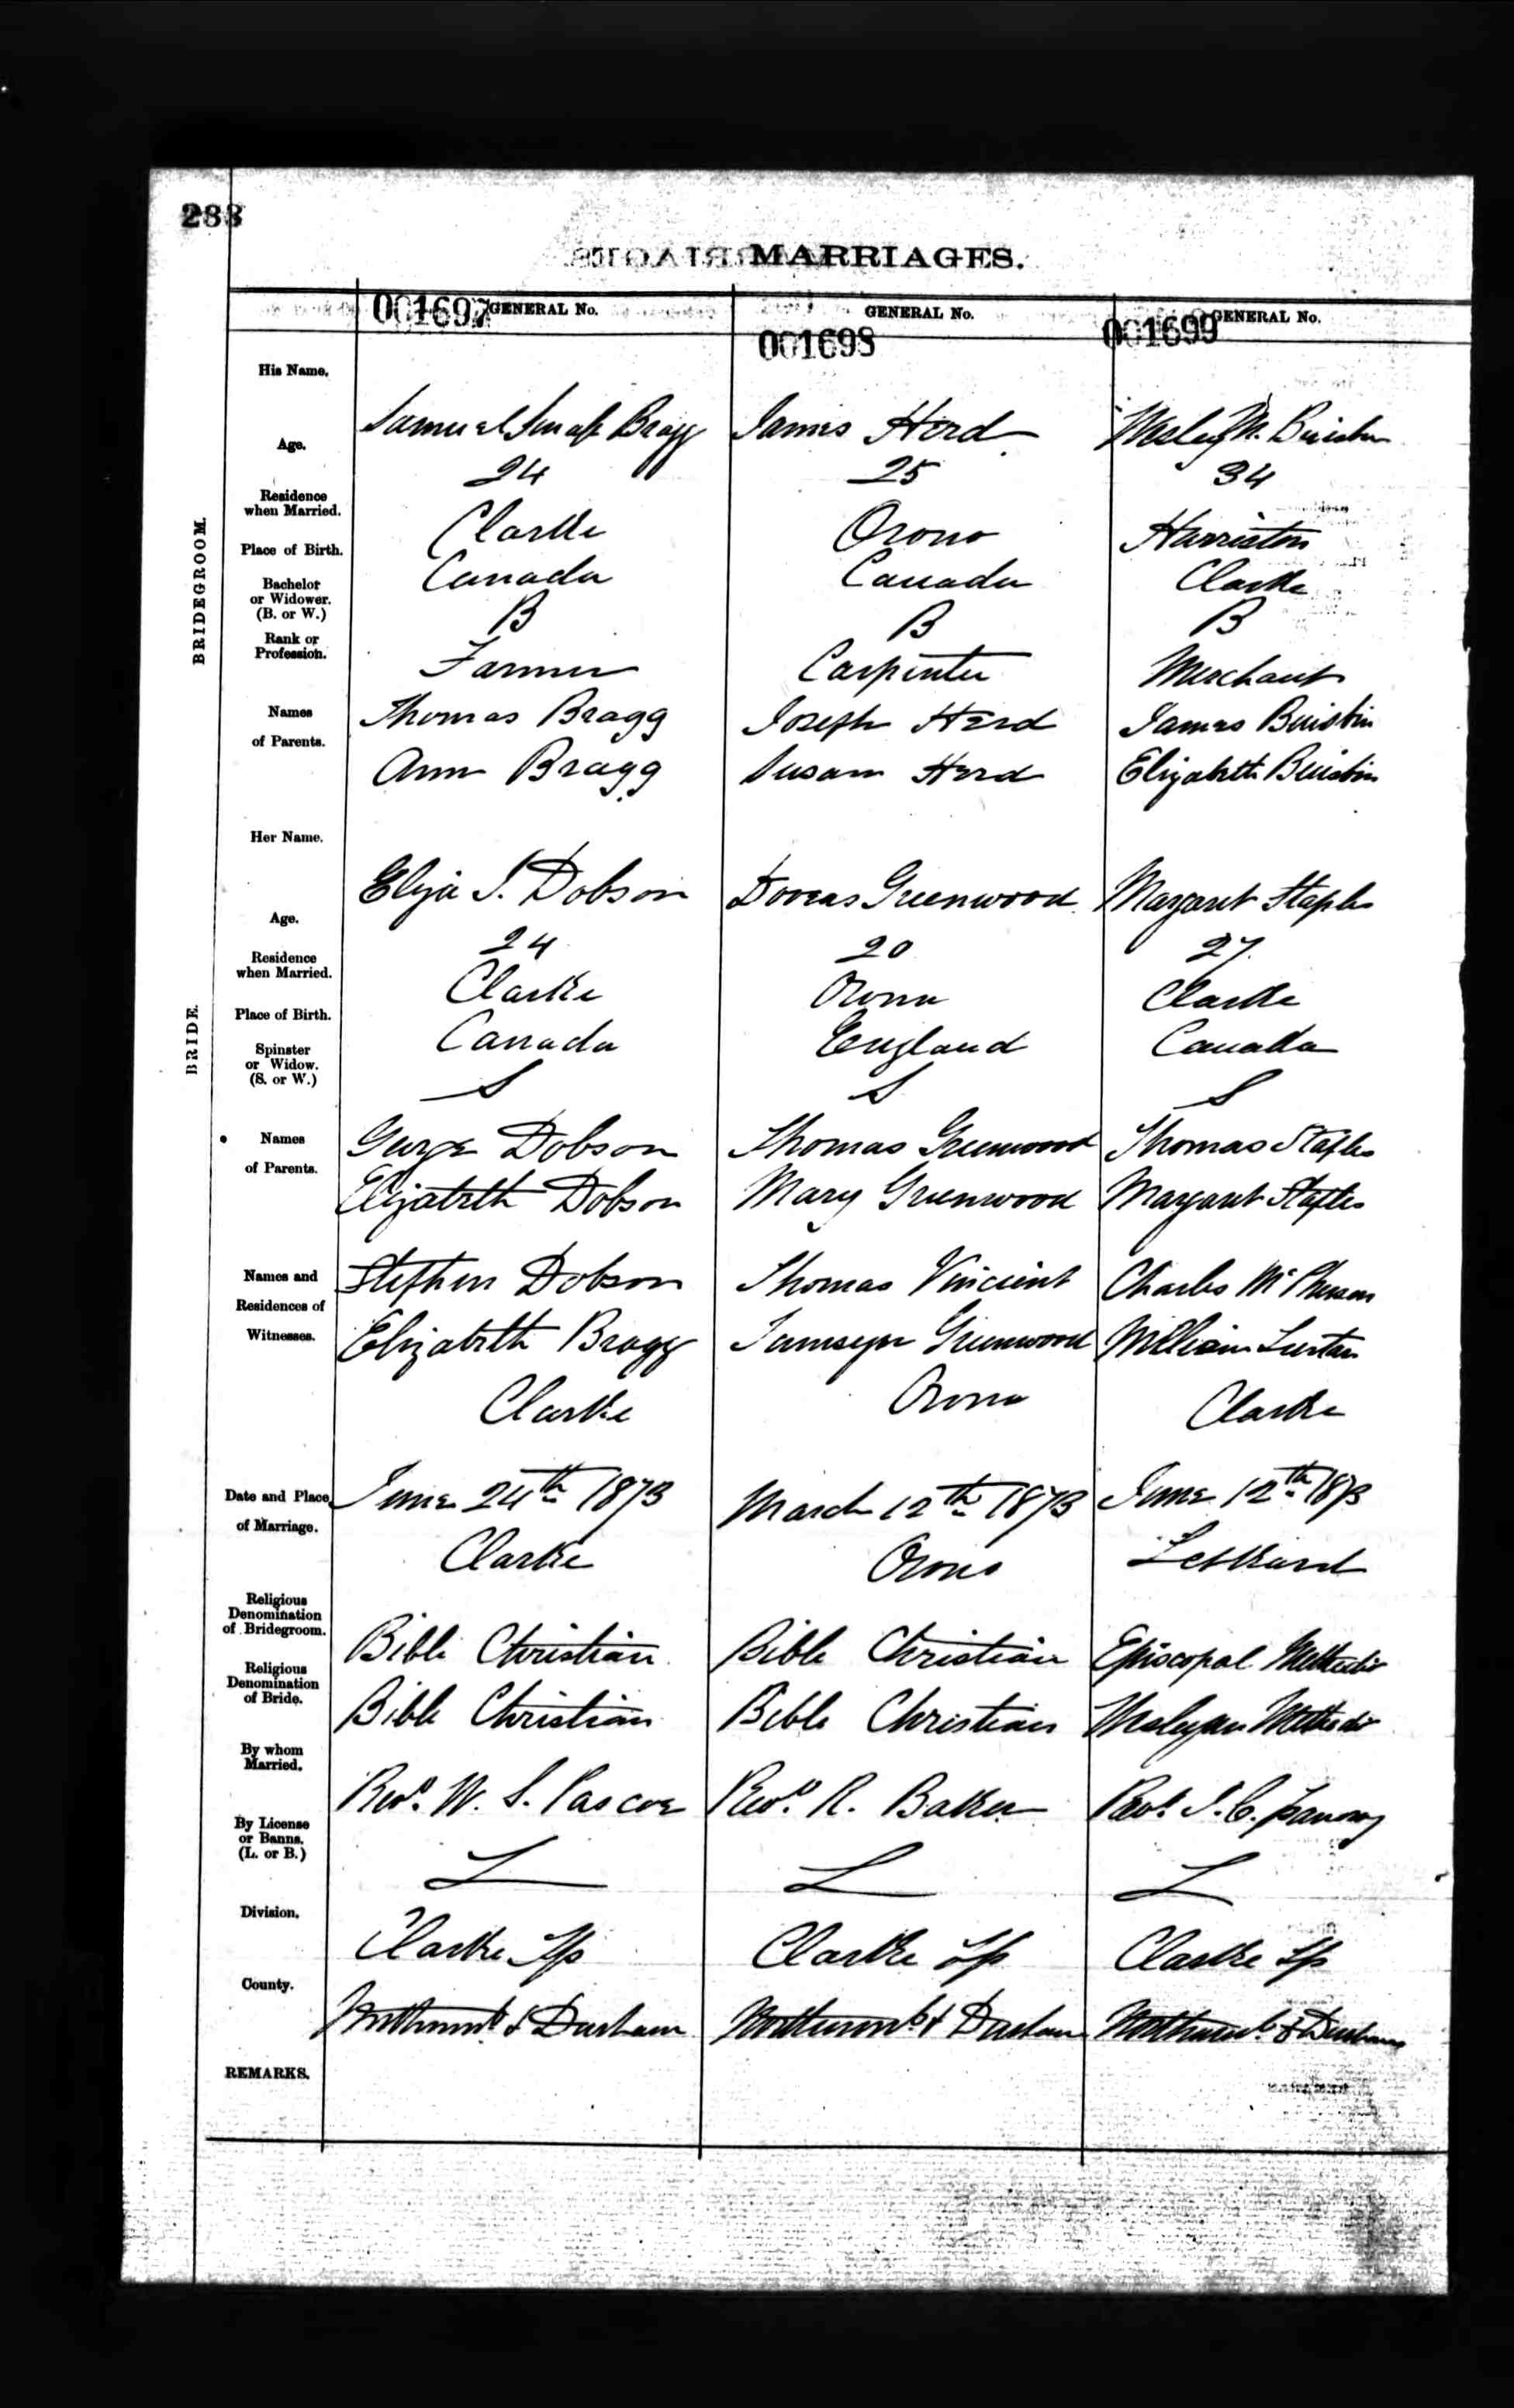 283
MARRIAGES.
001697 GENERAL No. GENERAL No. 001698 001699 GENERAL No.
BRIDEGROOM.
His Name. Samuel Bragg James Herd Wesley M.
Age. 24 25 34
Residence when Married. Clarke Orono Harriston
Place of Birth. Canada Canada Clarke
Bachelor or Widower. (B. or W.) B B B
Rank or Profession. Farmer Carpenter Merchant
Names of Parents. Thomas Bragg Joseph Herd James
Ann Bragg Susan Herd Elizabeth
BRIDE.
Her Name. Eliza J. Dobson Dorcas Greenwood Margaret Staples
Age. 24 20 27
Residence when Married. Clarke Orono Clarke
Place of Birth. Canada England Canada
Spinster or Widow. (S. or W.) S S S
Names of Parents. George Dobson Thomas Greenwood Thomas Staples
Elizabeth Dobson Mary Greenwood Margaret Staples
Names and Residences of Witnesses. Stephen Dobson Thomas Vincient Charles McPherson
Elizabeth Bragg Greenwood William
Clarke Orono Clarke
Date and Place of Marriage. June 24th 1873 March 12th 1873 June 12th 1873
Clarke Orono Leskard
Religious Denomination of Bridegroom. Bible Christian Bible Christian Episcopal Methodist
Religious Denomination of Bride. Bible Christian Bible Christian Wesleyan Methodist
By whom Married. Revd. W. S. Pascoe Revd. R. Baker Revd.
By License or Banns. (L. or B.) L L L
Division. Clarke Tp Clarke Tp Clarke Tp
County. Northumb. & Durham Northumb. & Durham Northumb. & Durham
REMARKS.